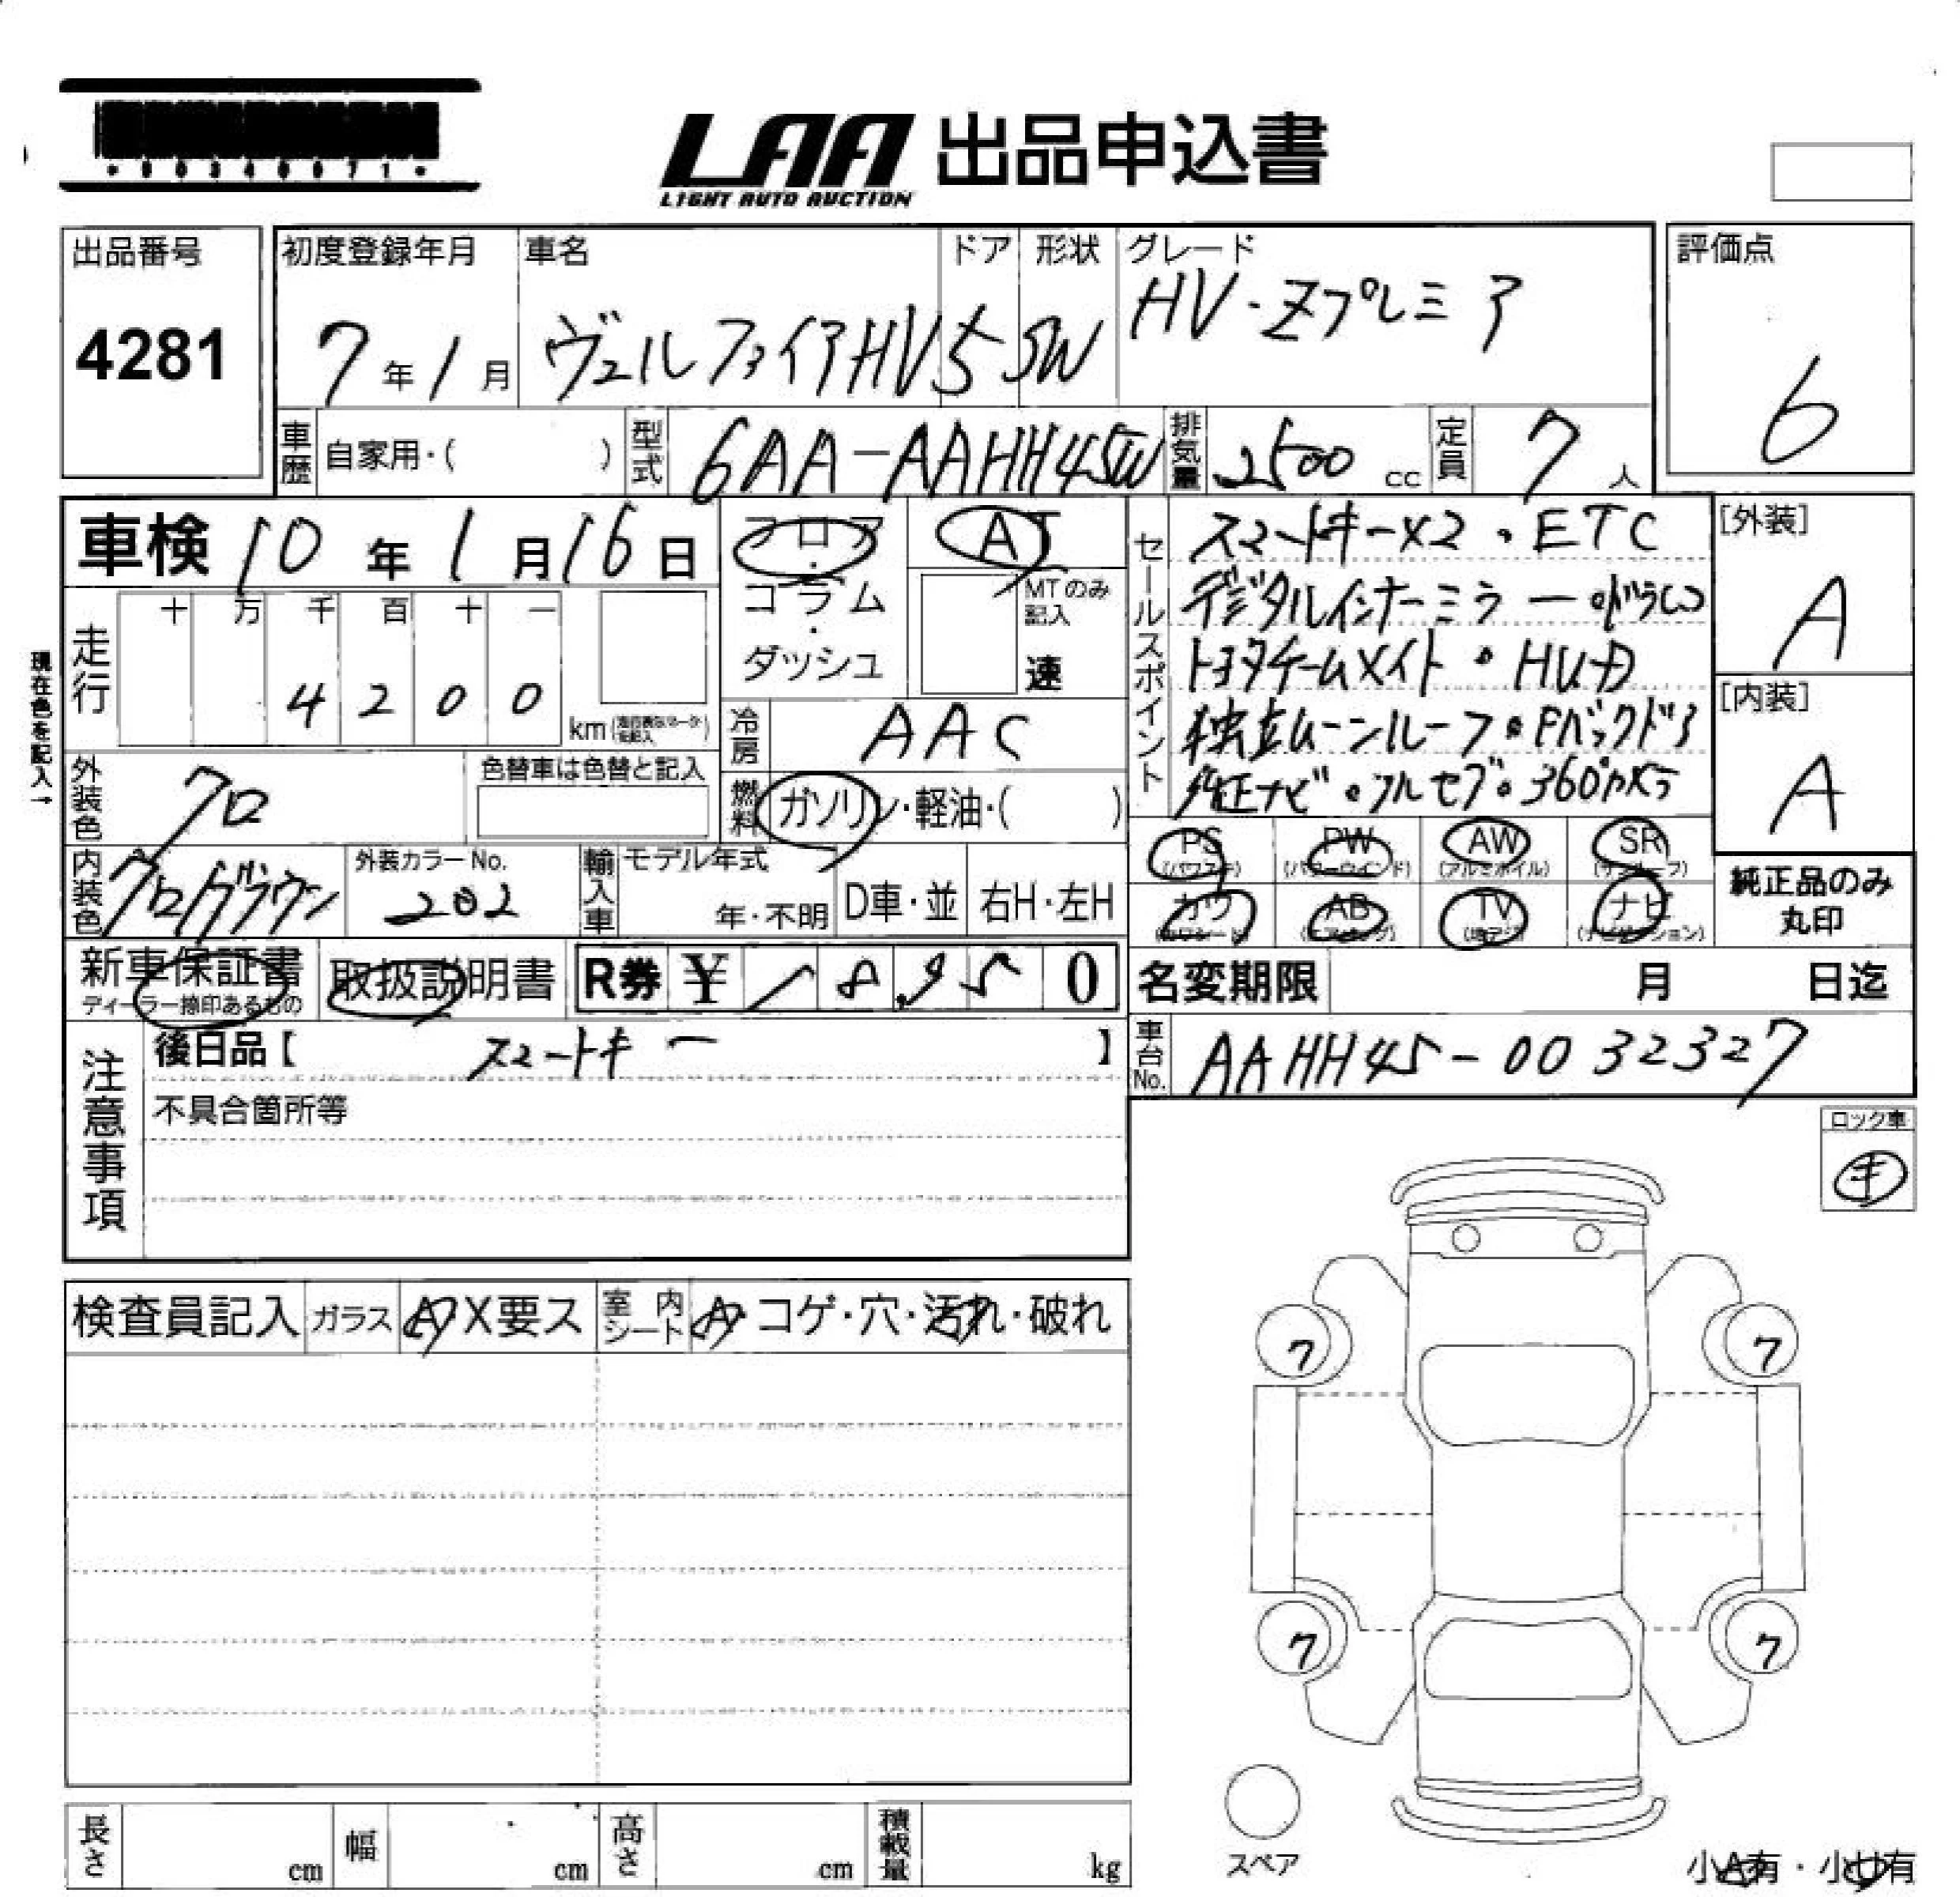 *00340071*
LAA 出品申込書
LIGHT AUTO AUCTION
出品番号
4281
初度登録年月
7年1月
車名
ヴェルファイアHV
ドア
5
形状
SW
グレード
HV・Zプレミア
評価点
6
車歴 自家用・( )
型式 6AA-AAHH45W
排気量 2500 cc
定員 7人
車検 10年1月16日
フロア・コラム・ダッシュ
AT
MTのみ記入
速
現在色を記入→
走行
十 万 千 百 十 一
4 2 0 0
km
冷房 AAC
外装色 クロ
色替車は色替と記入
燃料 ガソリン・軽油・( )
内装色 クロ/ブラウン
外装カラーNo.
202
輸入車
モデル年式
年・不明
D車・並
右H・左H
新車保証書
ディーラー捺印あるもの
取扱説明書
R券 ¥18,950
セールスポイント
スマートキー×2・ETC
デジタルインナーミラー・ドラレコ
トヨタチームメイト・HUD
独立ムーンルーフ・Pバックドア
純正ナビ・フルセグ・360°カメラ
[外装]
A
[内装]
A
PS
(パワステ)
PW
(パワーウインド)
AW
(アルミホイル)
SR
(サンルーフ)
カワ
(カワシート)
AB
(エアバッグ)
TV
(地デジ)
ナビ
(ナビゲーション)
純正品のみ
丸印
名変期限 月 日迄
車台No. AAHH45-0032327
注意事項
後日品【スマートキー】
不具合箇所等
ロック車
キ
検査員記入
ガラス A X要ス
室内シート A・コゲ・穴・汚れ・破れ
7
7
7
7
スペア
長さ cm
幅 cm
高さ cm
積載量 kg
小A有・小U有